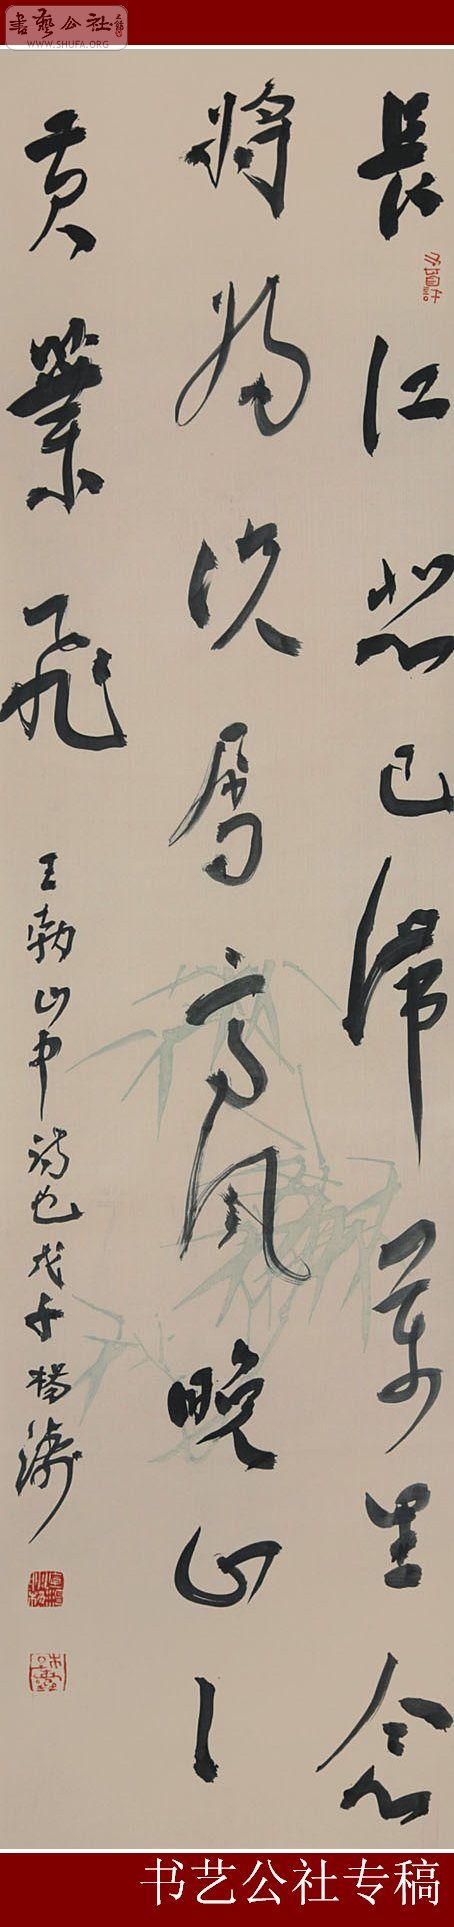 書藝公社
WWW.SHUFA.ORG
長江悲已滯萬里念
將歸况屬高風晚山々
黄葉飛
王勃山中詩也戊子楊濤
书艺公社专稿